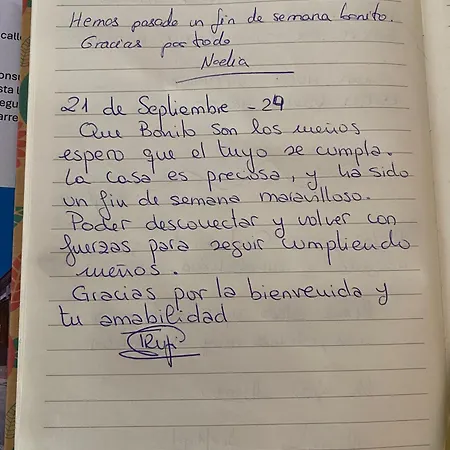 Hemos pasado un fin de semana bonito.
Gracias por todo
Noelia
21 de Septiembre - 24
Que Bonito son los sueños
espero que el tuyo se cumpla.
La casa es preciosa, y ha sido
un fin de semana maravilloso.
Poder desconectar y volver con
fuerzas para seguir cumpliendo
sueños.
Gracias por la bienvenida y
tu amabilidad